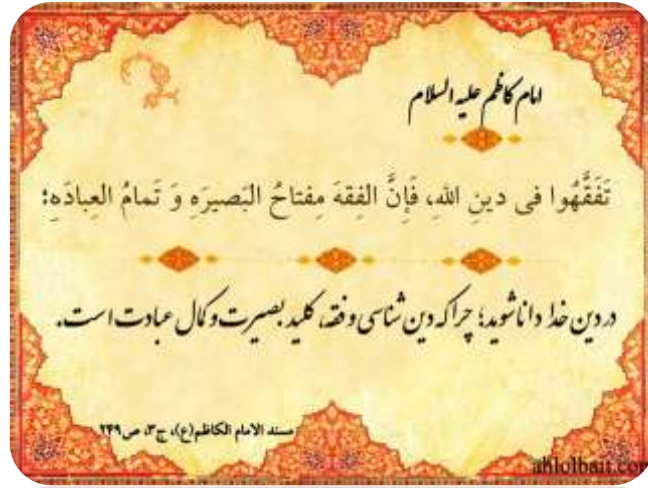 امام کاظم علیه السلام
تَفَقَّهُوا فی دینِ اللهِ، فَإنَّ الفِقهَ مِفتاحُ البَصیرَهِ وَ تَمامُ العِبادَهِ؛
در دین خدا دانا شوید؛ چرا که دین شناسی و فقه، کلید بصیرت و کمال عبادت است.
مسند الامام الکاظم(ع)، ج۳، ص۲۴۹
ahlolbait.com